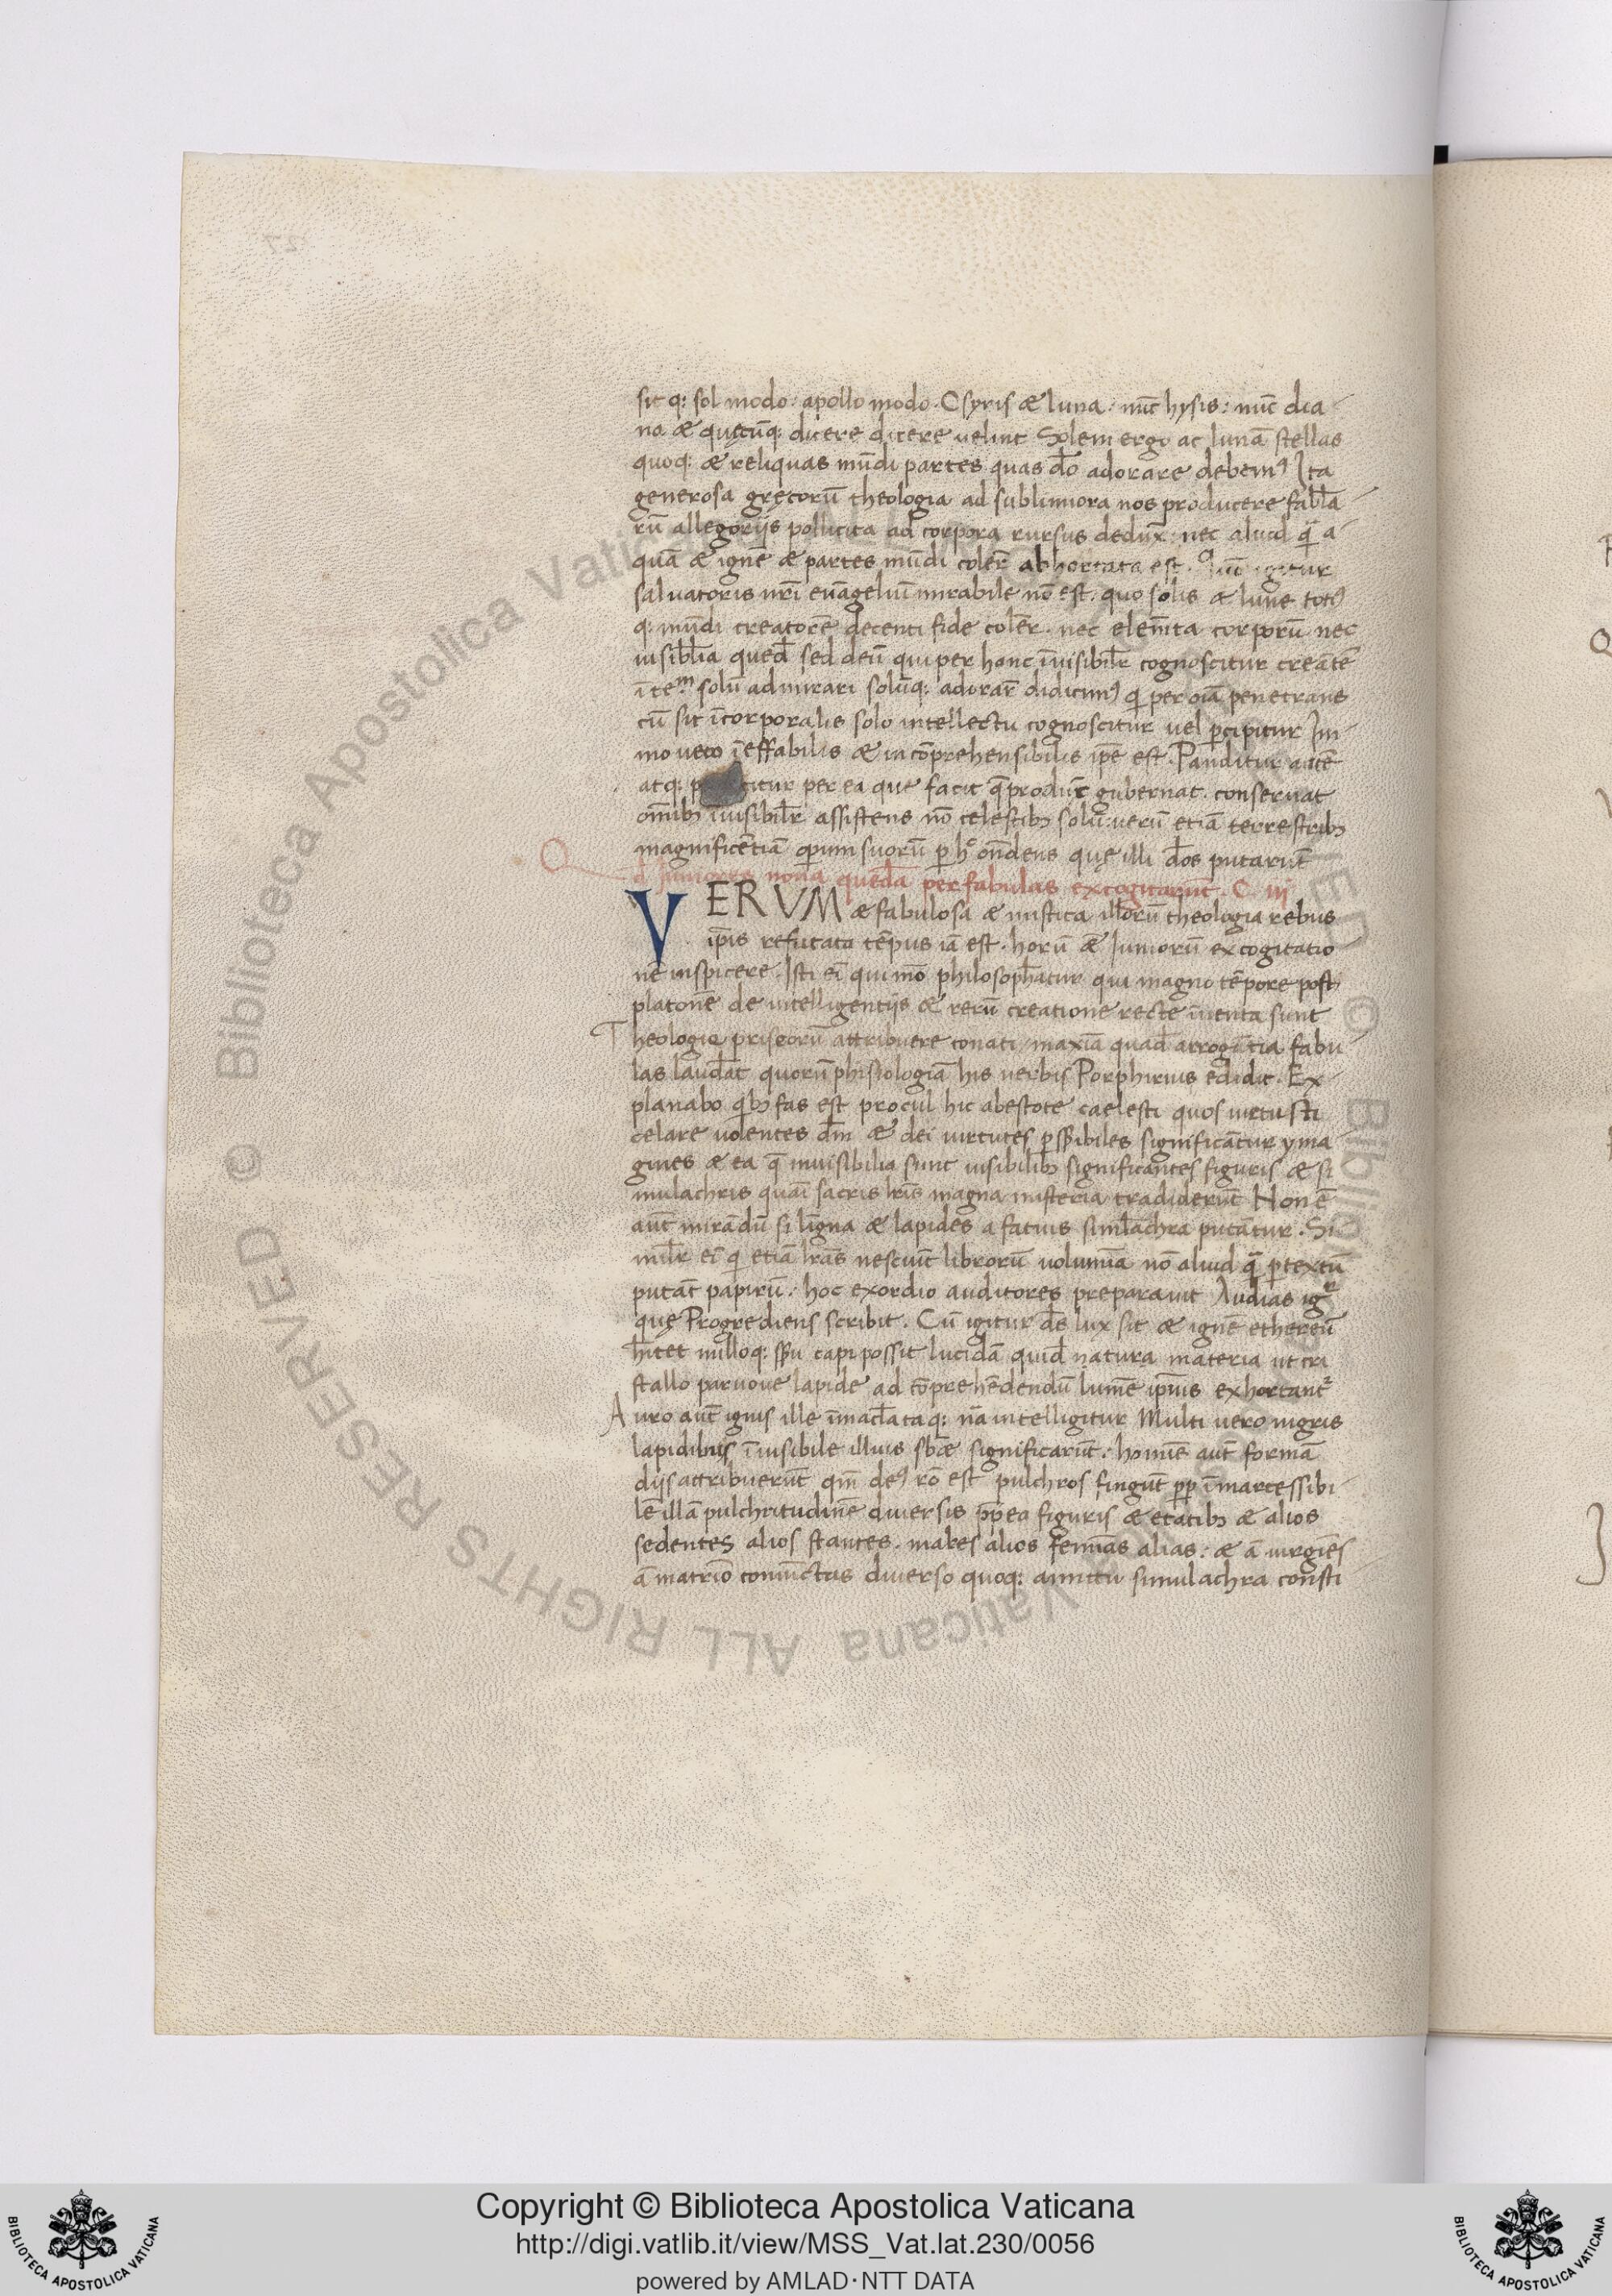 sit q: sol modo: apollo modo. Osyris & luna: nūc hysis: nūc dia
na & quęcūq: dicere dicere uelint Solem ergo ac lunā stellas
quoq: & reliquas mūdi partes quas deo adorare debemꝰ Ita
generosa gręcorū theologia ad sublimiora nos producere fabla
rū allegorijs pollicita ad corpora rursus deduxᷣ: nec aliud q̄ a
quā & ignē & partes mūdi colerē abhortata est. igitur
saluatoris nrī euāgeliū mirabile nō est. quo solis & lune totꝰ
q: mūdi creatorē decenti fide colerē. nec elemēta corporū nec
uisiblia quedā sed deū qui per hanc īuisibilr cognoscitur creātē
solū admirari solūq: adorarē didicimꝰ qi per oīa penetrans
cū sit īcorporalis solo intellectu cognoscitur uel ꝑcipitur Im
mo uero īeffabilis & incōprehensibilis ipē est. Panditur autē
atq: p itur per ea que facit q̄ producit gubernat. conseruat
omībꝫ īuisibilr assistens nō celestibꝫ solū: uerū etiā terrestribꝫ
magnificētiā opum suorū ꝑ hᵒ ondens quę illi deos putarūt
Qd Iuniores noua quedā per fabulas excogitarūt. C iij
VERVM & fabulosa & mistica illorū theologia rebus
ipīs refutata tēpus iā est. horū & Iuniorū excogitatio
nē inspicere. Isti eī qui mō philosophatur qui magno tēpore post
platonē de intelligentijs & rerū creatione recte īuenta sunt
Theologię priscorū attribuere conati maxīa quadā arrogātia fabu
las laudāt quorū phisiologiā his uerbis Porphirius edidit. Ex
planabo qibꝫ fas est procul hic abestote caelesti quos uirtusti
celare uolentes dm & dei uirtutes ꝑ ssibiles significātur yma
gines & ea q̄ inuisibilia sunt uisibilibꝫ significantes figuris & si
mulachris quāi sacris lrīs magna misteria tradiderūt Non ē
aūt mirādū si ligna & lapides a fatuis simlachra putātur. Si
milr eī qi etiā lrās nesciūt librorū uolumīa nō aliud q̄ ꝑtextū
putāt papirū. hoc exordio auditores preparauit Audias igʳ
quę Progrediens scribit. Cū igitur ds lux sit & ignē ethereū
hītet nulloq: ssu capi possit lucidā quid natura materia ut cri
stallo paruoue lapide ad cōprehēdendū lumē ipīus exhortantᷣ
Auro aūt ignis ille īmaclataq: nā intelligitur Multi uero nigris
lapidibus īuisibile illius sbāe significarūt. homīē aūt formā
dijs attribuerūt qm̄ deꝰ rō est pulchros fingūt ꝑp īmarcessibi
lē illā pulchritudinē diuersis ꝓpea figuris & etatibꝫ & alios
sedentes alios stantes. mares alios femīas alias: & ā uirgīes
ā matrīo coniūctas diuerso quoq: amictu simulachra consti
27
Copyright © Biblioteca Apostolica Vaticana
http://digi.vatlib.it/view/MSS_Vat.lat.230/0056
powered by AMLAD·NTT DATA